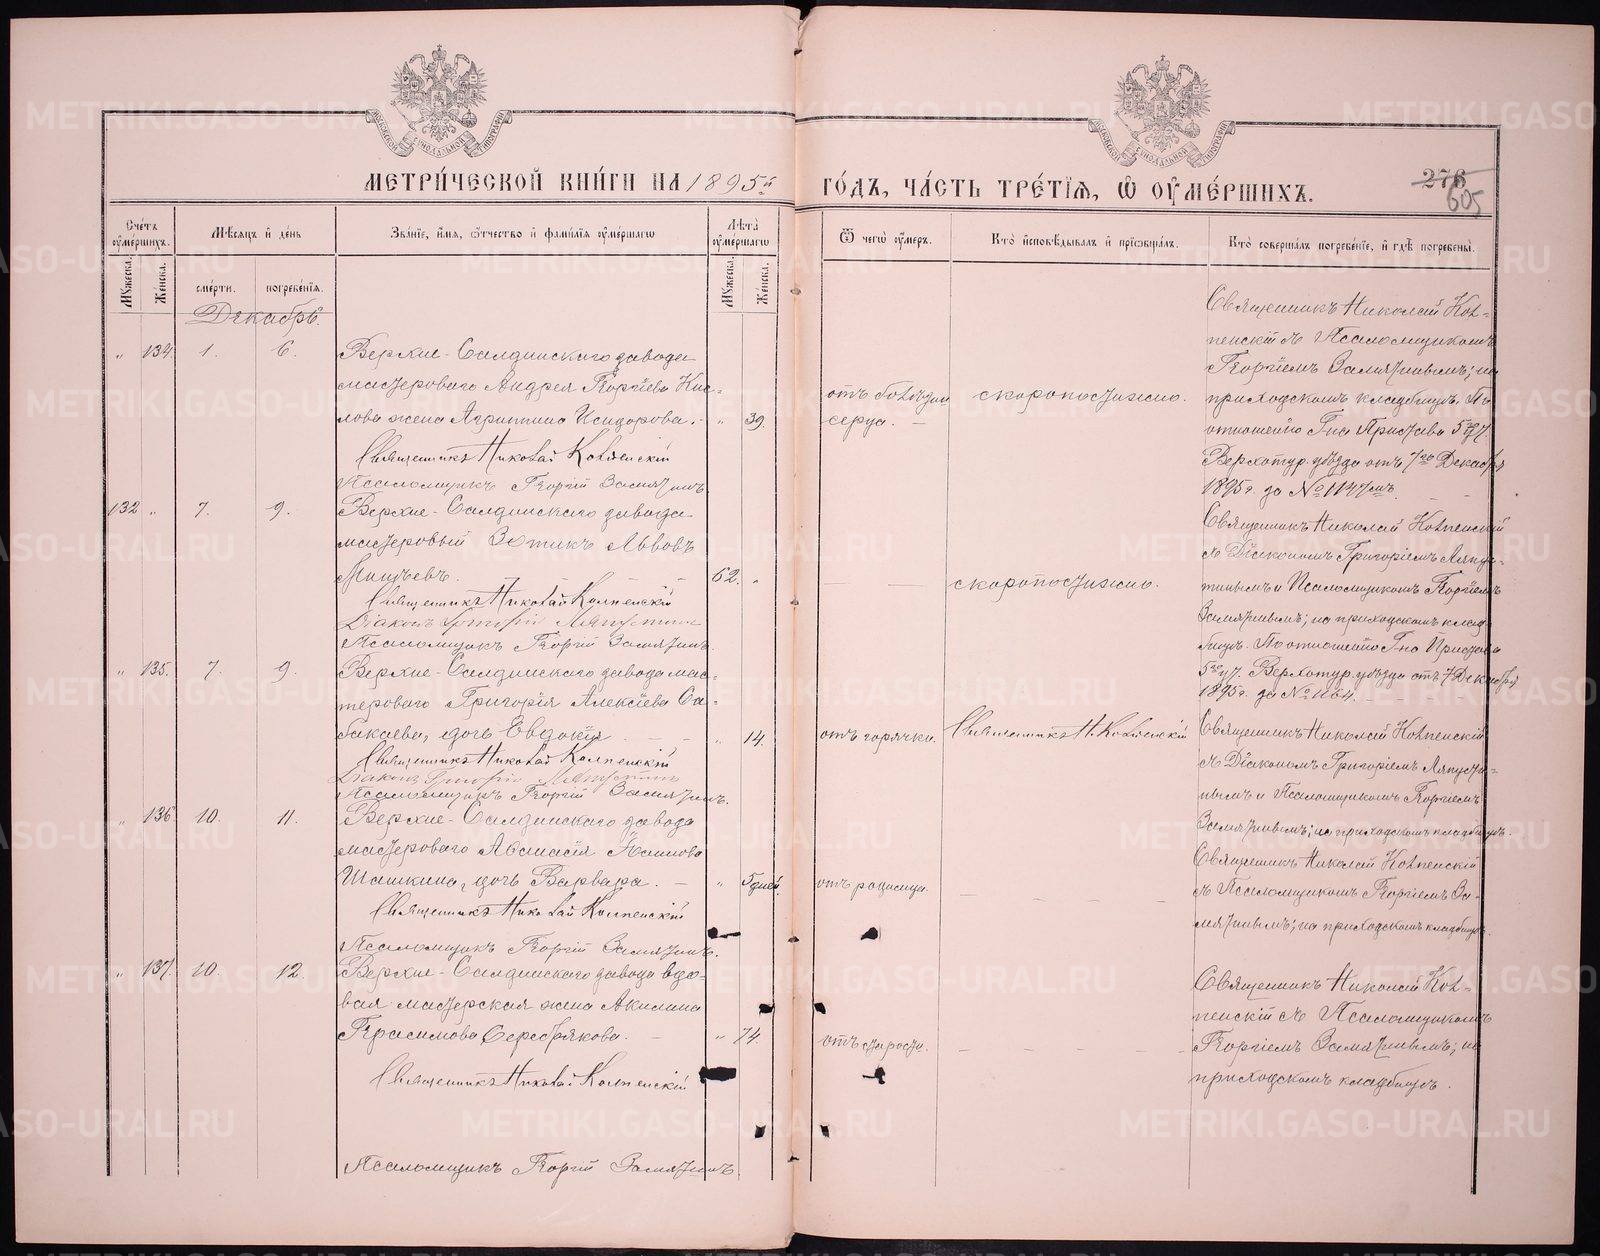 МЕТРИ́ЧЕСКОЙ КНИ́ГИ НА 1895й
ГО́ДЪ, ЧА́СТЬ ТРЕ́ТІѦ, Ѡ҆ ОУ҆МЕ́РШИХЪ.
276
605
Сче́тъ оу҆ме́ршихъ.
Мꙋ́жеска.
Же́нска.
Мѣ́сѧцъ и҆ де́нь
сме́рти.
погребе́нїѧ.
Зва́нїе, и҆́мѧ, ѻ҆́тчество и҆ фами́лїѧ оу҆ме́ршагѡ
Лѣ́та̀ оу҆ме́ршагѡ
Мꙋ́жеска.
Же́нска.
Ѿ чегѡ̀ оу҆́меръ.
Кто̀ и҆сповѣ́дывалъ и҆ прїѡбща́лъ.
Кто̀ соверша́лъ погребе́нїе, и҆ гдѣ̀ погребены̀.
Декабрь.
„ 134 1. 6.
Верхне-Салдинскаго завода
мастероваго Андрея Георгіева Кис-
лова жена Агриппина Исидорова.
„ 39.
Священникъ Николай Колпенскій
Псаломщикъ Георгій Замятинъ.
отъ болѣзни
сердца.
скоропостижно.
Священникъ Николай Кол-
пенскій съ Псаломщикомъ
Георгіемъ Замятинымъ; на
приходскомъ кладбищѣ. По
отношенію Г-на Пристава 5го уч.
Верхотур. уѣзда отъ 7го Декабря
1895 г. за № 1147мъ.
132 „ 7. 9.
Верхне-Салдинскаго завода
мастеровый Зотикъ Львовъ
62. „
Священникъ Николай Колпенскій
Діаконъ Григорій Ляпустинъ
Псаломщикъ Георгій Замятинъ.
скоропостижно.
Священникъ Николай Колпенскій
съ Діакономъ Григоріемъ Ляпус-
тинымъ и Псаломщикомъ Георгіемъ
Замятинымъ; на приходскомъ клад-
бищѣ. По отношенію Г-на Пристава
5го уч. Верхотур. уѣзда отъ 7 Декабря
1895 г. за № 1164.
„ 135. 7. 9.
Верхне-Салдинскаго завода мас-
тероваго Григорія Алексіева Са-
бакаева, дочь Евдокія
„ 14.
Священникъ Николай Колпенскій
Діаконъ Григорій Ляпустинъ
Псаломщикъ Георгій Замятинъ.
отъ горячки.
Священникъ Н. Колпенскій
Священникъ Николай Колпенскій
съ Діакономъ Григоріемъ Ляпусти-
нымъ и Псаломщикомъ Георгіемъ
Замятинымъ; на приходскомъ кладбищѣ.
„ 136 10. 11.
Верхне-Салдинскаго завода
мастероваго Аѳанасія
Шашкина, дочь Варвара.
„ 5 дней.
Священникъ Николай Колпенскій
Псаломщикъ Георгій Замятинъ.
отъ родимца.
Священникъ Николай Колпенскій
съ Псаломщикомъ Георгіемъ За-
мятинымъ; на приходскомъ кладбищѣ.
„ 137. 10. 12.
Верхне-Салдинскаго завода вдо-
вая мастерская жена Акилина
Герасимова Серебрякова.
„ 74.
Священникъ Николай Колпенскій
Псаломщикъ Георгій Замятинъ.
отъ старости.
Священникъ Николай Кол-
пенскій съ Псаломщикомъ
Георгіемъ Замятинымъ; на
приходскомъ кладбищѣ.
METRIKI.GASO-URAL.RU